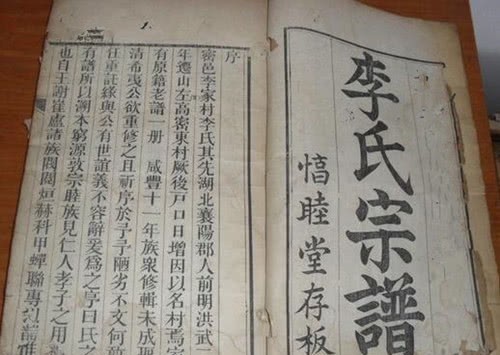 李氏宗譜
睦堂存板
序
密邑李家村李氏其先湖北襄陽郡人前明洪武二
年遷山左高密東村厥後戸口日增因以名村焉家
有原籍老譜一册 咸豐十一年族衆修輯未成
清希夷公欲重修之且祈序於予予陋劣不文何敢
任重託緣與公有世誼義不容辭爰為之序曰氏之
有譜所以溯本窮源敦宗睦族見仁人孝子之用
也自王謝崔盧諸族閥閱烜赫科甲蟬聯專